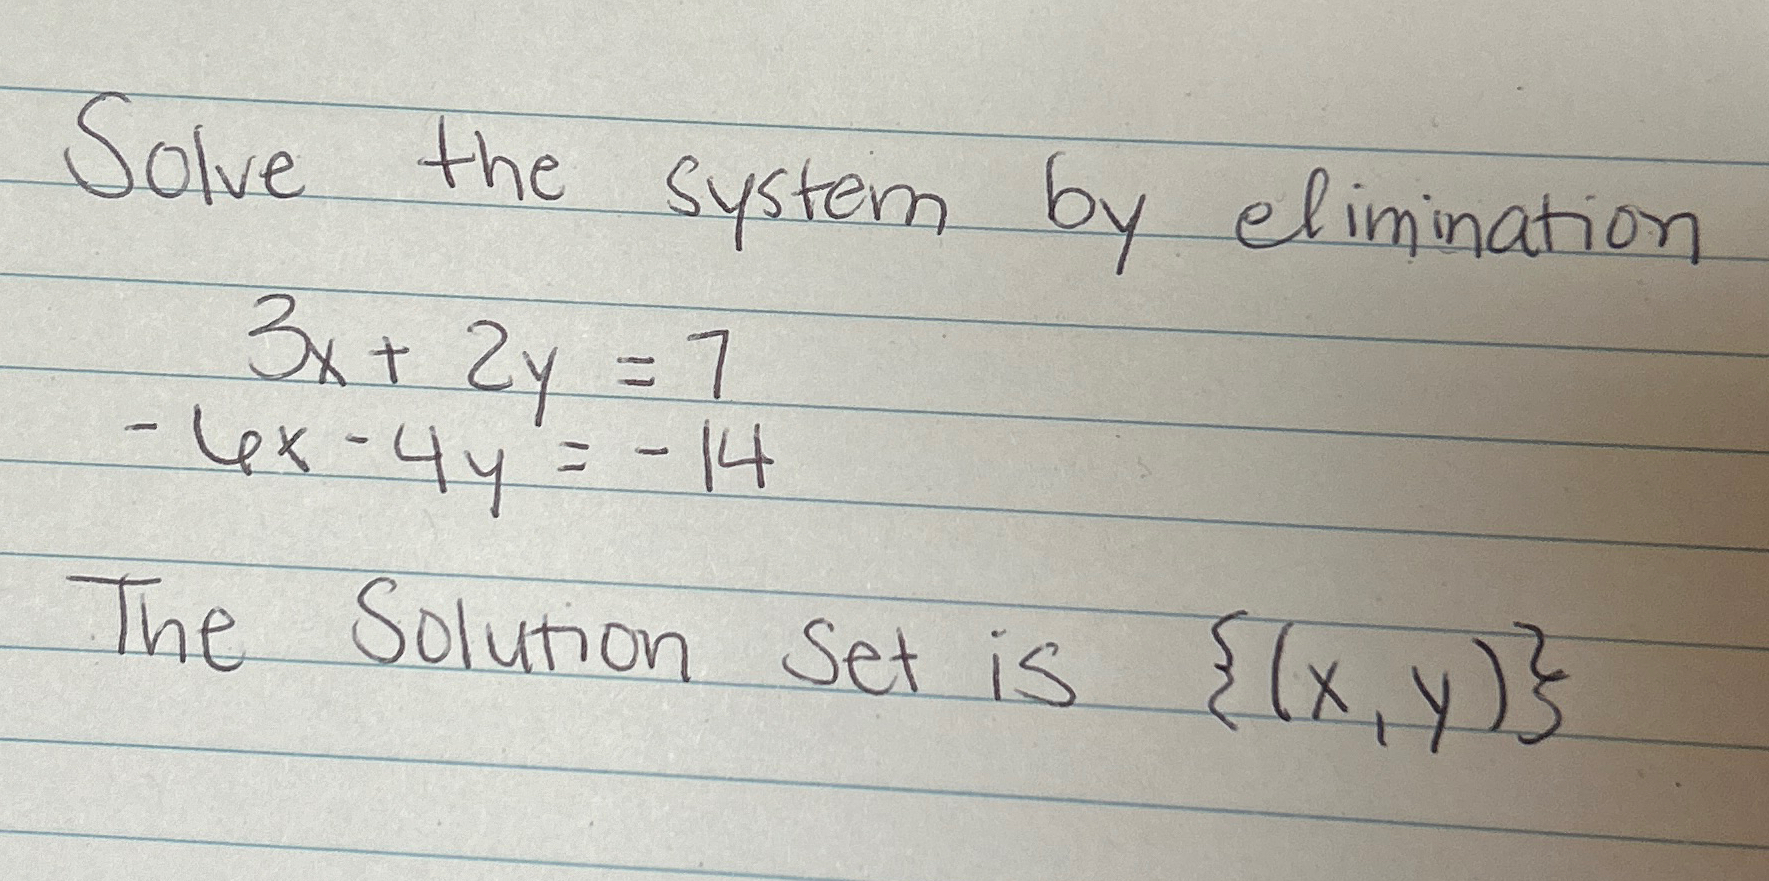 Solve the system by elimination
3x + 2y = 7
-6x - 4y = -14
The Solution Set is {(x, y)}